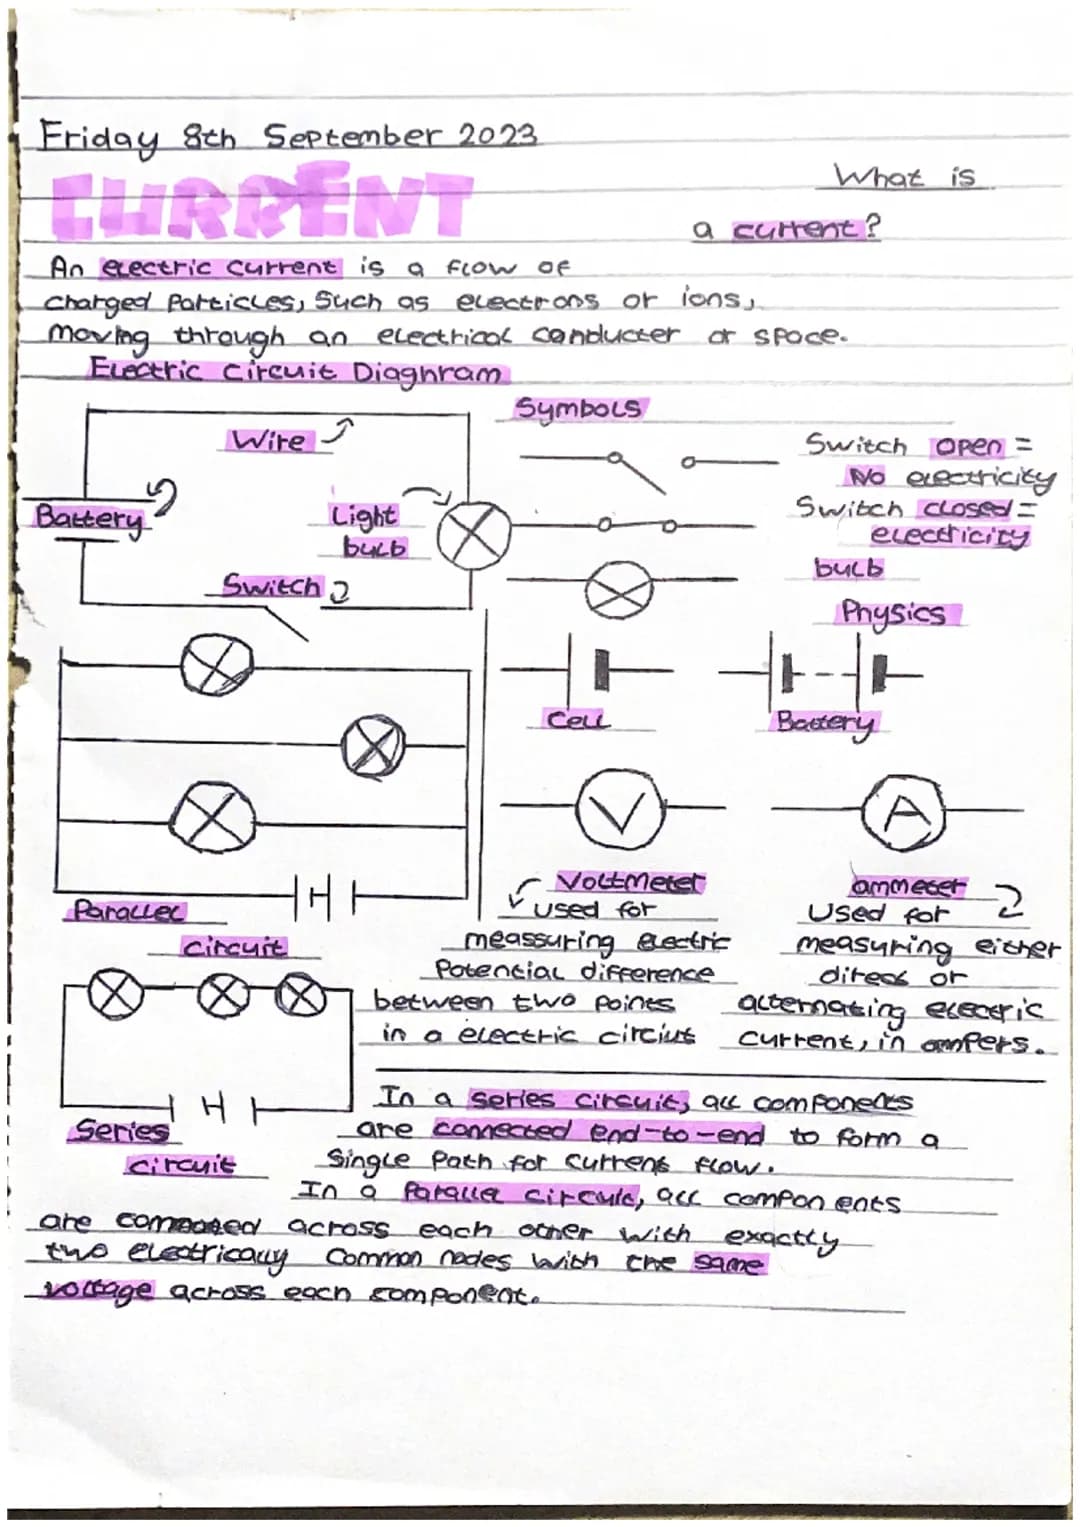 Friday 8th September 2023
CURRENT
What is
a current?
An electric current is a flow of
charged particles, such as electrons or ions,
moving through an electrical conducter or space.
Electric Circuit Diaghram
Wire
Battery
Light
bulb
Switch
Symbols
Switch open =
No electricity
Switch closed =
electricity
bulb
Physics
Cell
Battery
V
A
Voltmeter
used for
meassuring electric
Potential difference
between two points
in a electric circiut
ammeter
Used for
measuring either
direct or
alternating electric
current, in ampers.
Parallel
circuit
Series
circuit
In a series circuit, all components
are connected end-to-end to form a
Single Path for current flow.
In a Parallel circuit, all components
are connected across each other with exactly
two electrically common nodes with the same
voltage across each component.